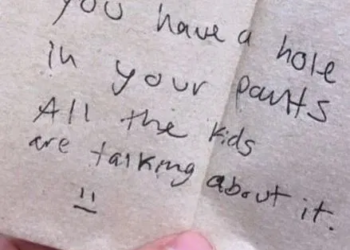 you have a hole
in your pants
All the kids
are talking about it.